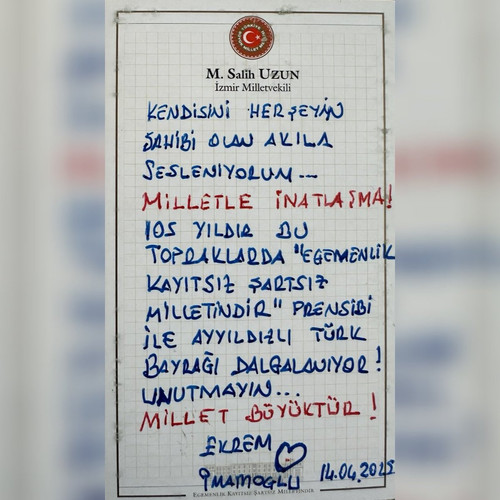 M. Salih UZUN
İzmir Milletvekili
KENDİSİNİ HERŞEYİN
SAHİBİ OLAN AKILA
SESLENİYORUM...
MİLLETLE İNATLAŞMA!
105 YILDIR BU
TOPRAKLARDA "EGEMENLİK
KAYITSIZ ŞARTSIZ
MİLLETİNDİR" PRENSİBİ
İLE AYYILDIZLI TÜRK
BAYRAĞI DALGALANIYOR!
UNUTMAYIN...
MİLLET BÜYÜKTÜR!
EKREM
İMAMOĞLU 14.04.2025
EGEMENLİK KAYITSIZ ŞARTSIZ MİLLETİNDİR